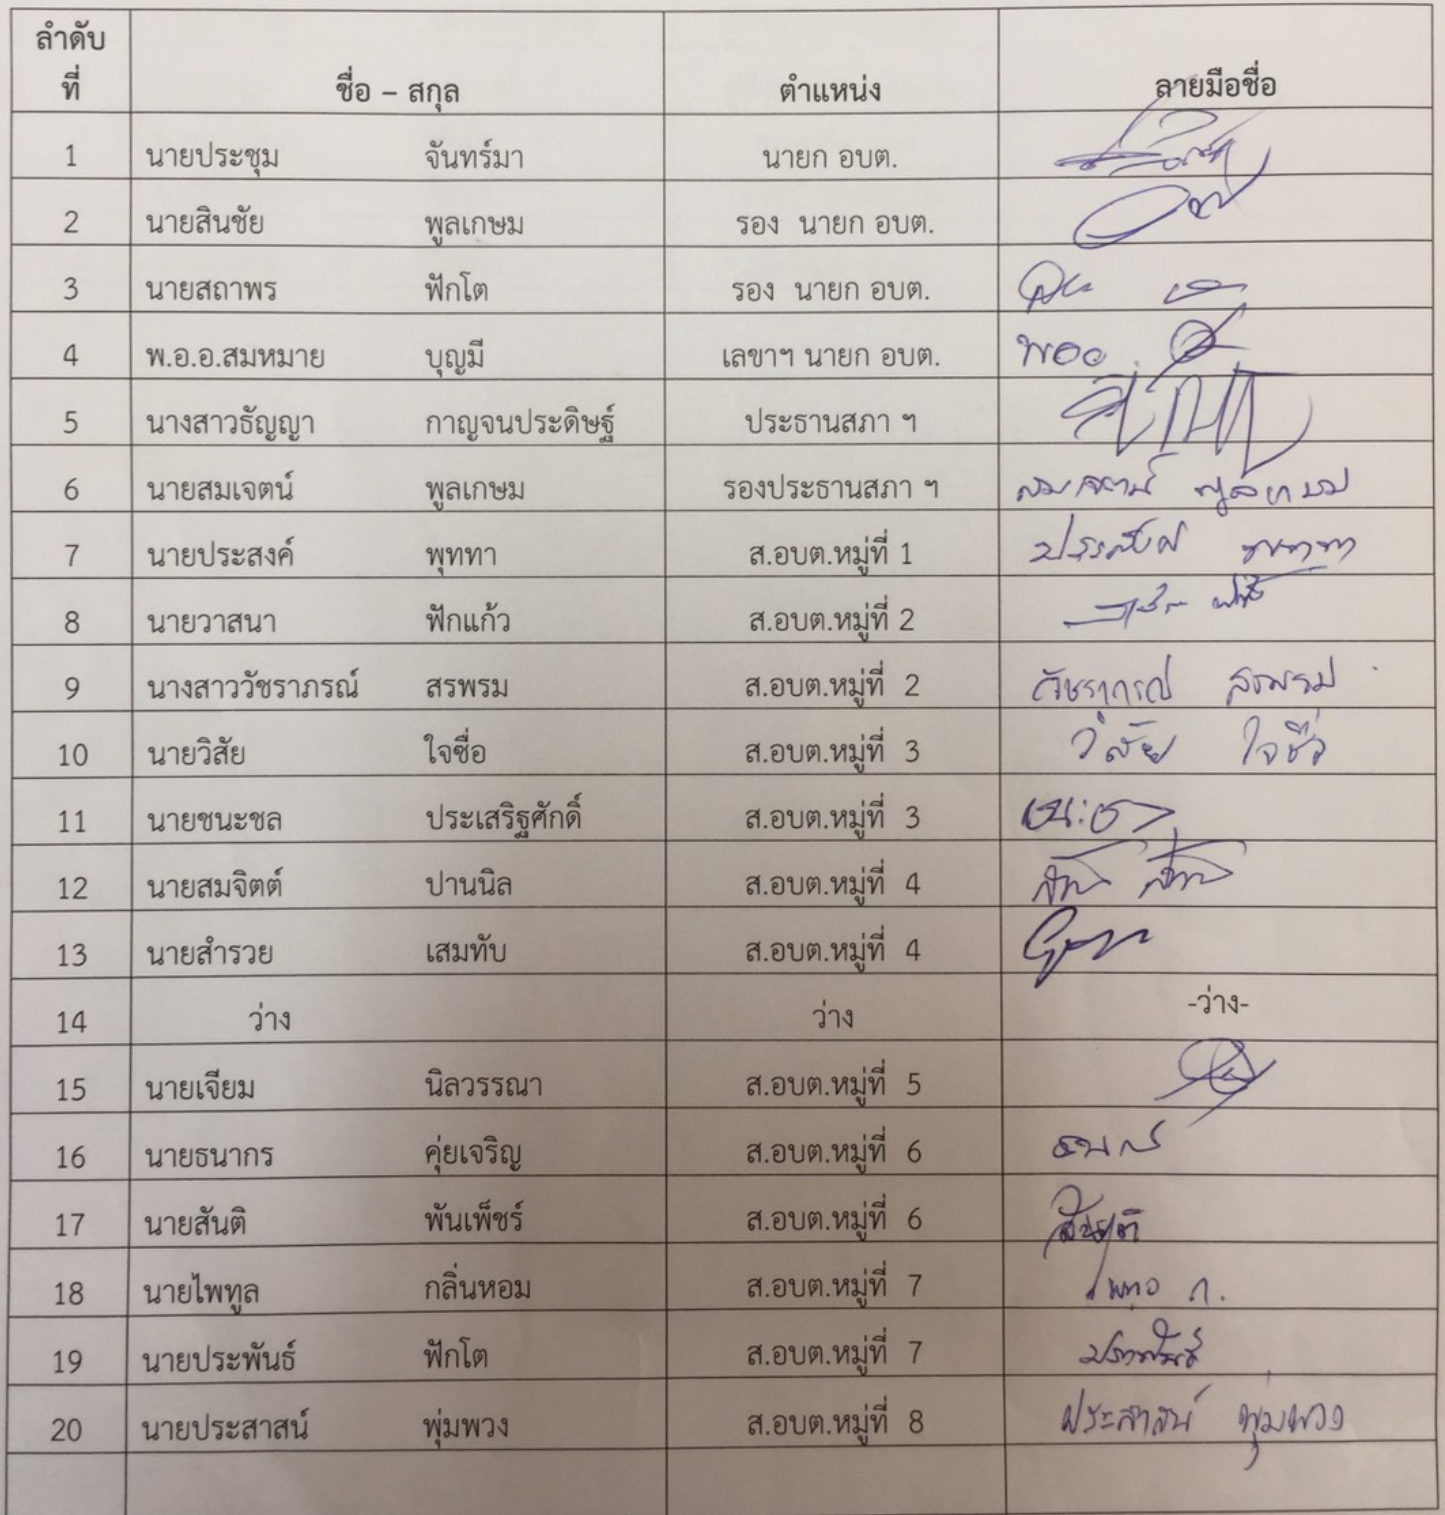 ลำดับที่ ชื่อ – สกุล ตำแหน่ง ลายมือชื่อ
1 นายประชุม จันทร์มา นายก อบต.
2 นายสินชัย พูลเกษม รอง นายก อบต.
3 นายสถาพร ฟักโต รอง นายก อบต.
4 พ.อ.อ.สมหมาย บุญมี เลขาฯ นายก อบต. พออ.
5 นางสาวธัญญา กาญจนประดิษฐ์ ประธานสภา ฯ
6 นายสมเจตน์ พูลเกษม รองประธานสภา ฯ สมเจตน์ พูลเกษม
7 นายประสงค์ พุททา ส.อบต.หมู่ที่ 1 ประสงค์ พุททา
8 นายวาสนา ฟักแก้ว ส.อบต.หมู่ที่ 2
9 นางสาววัชราภรณ์ สรพรม ส.อบต.หมู่ที่ 2 วัชราภรณ์ สรพรม
10 นายวิสัย ใจซื่อ ส.อบต.หมู่ที่ 3 วิสัย ใจซื่อ
11 นายชนะชล ประเสริฐศักดิ์ ส.อบต.หมู่ที่ 3
12 นายสมจิตต์ ปานนิล ส.อบต.หมู่ที่ 4
13 นายสำรวย เสมทับ ส.อบต.หมู่ที่ 4
14 ว่าง ว่าง -ว่าง-
15 นายเจียม นิลวรรณา ส.อบต.หมู่ที่ 5
16 นายธนากร คุ่ยเจริญ ส.อบต.หมู่ที่ 6
17 นายสันติ พันเพ็ชร์ ส.อบต.หมู่ที่ 6 สันติ
18 นายไพทูล กลิ่นหอม ส.อบต.หมู่ที่ 7
19 นายประพันธ์ ฟักโต ส.อบต.หมู่ที่ 7 ประพันธ์
20 นายประสาสน์ พุ่มพวง ส.อบต.หมู่ที่ 8 ประสาสน์ พุ่มพวง